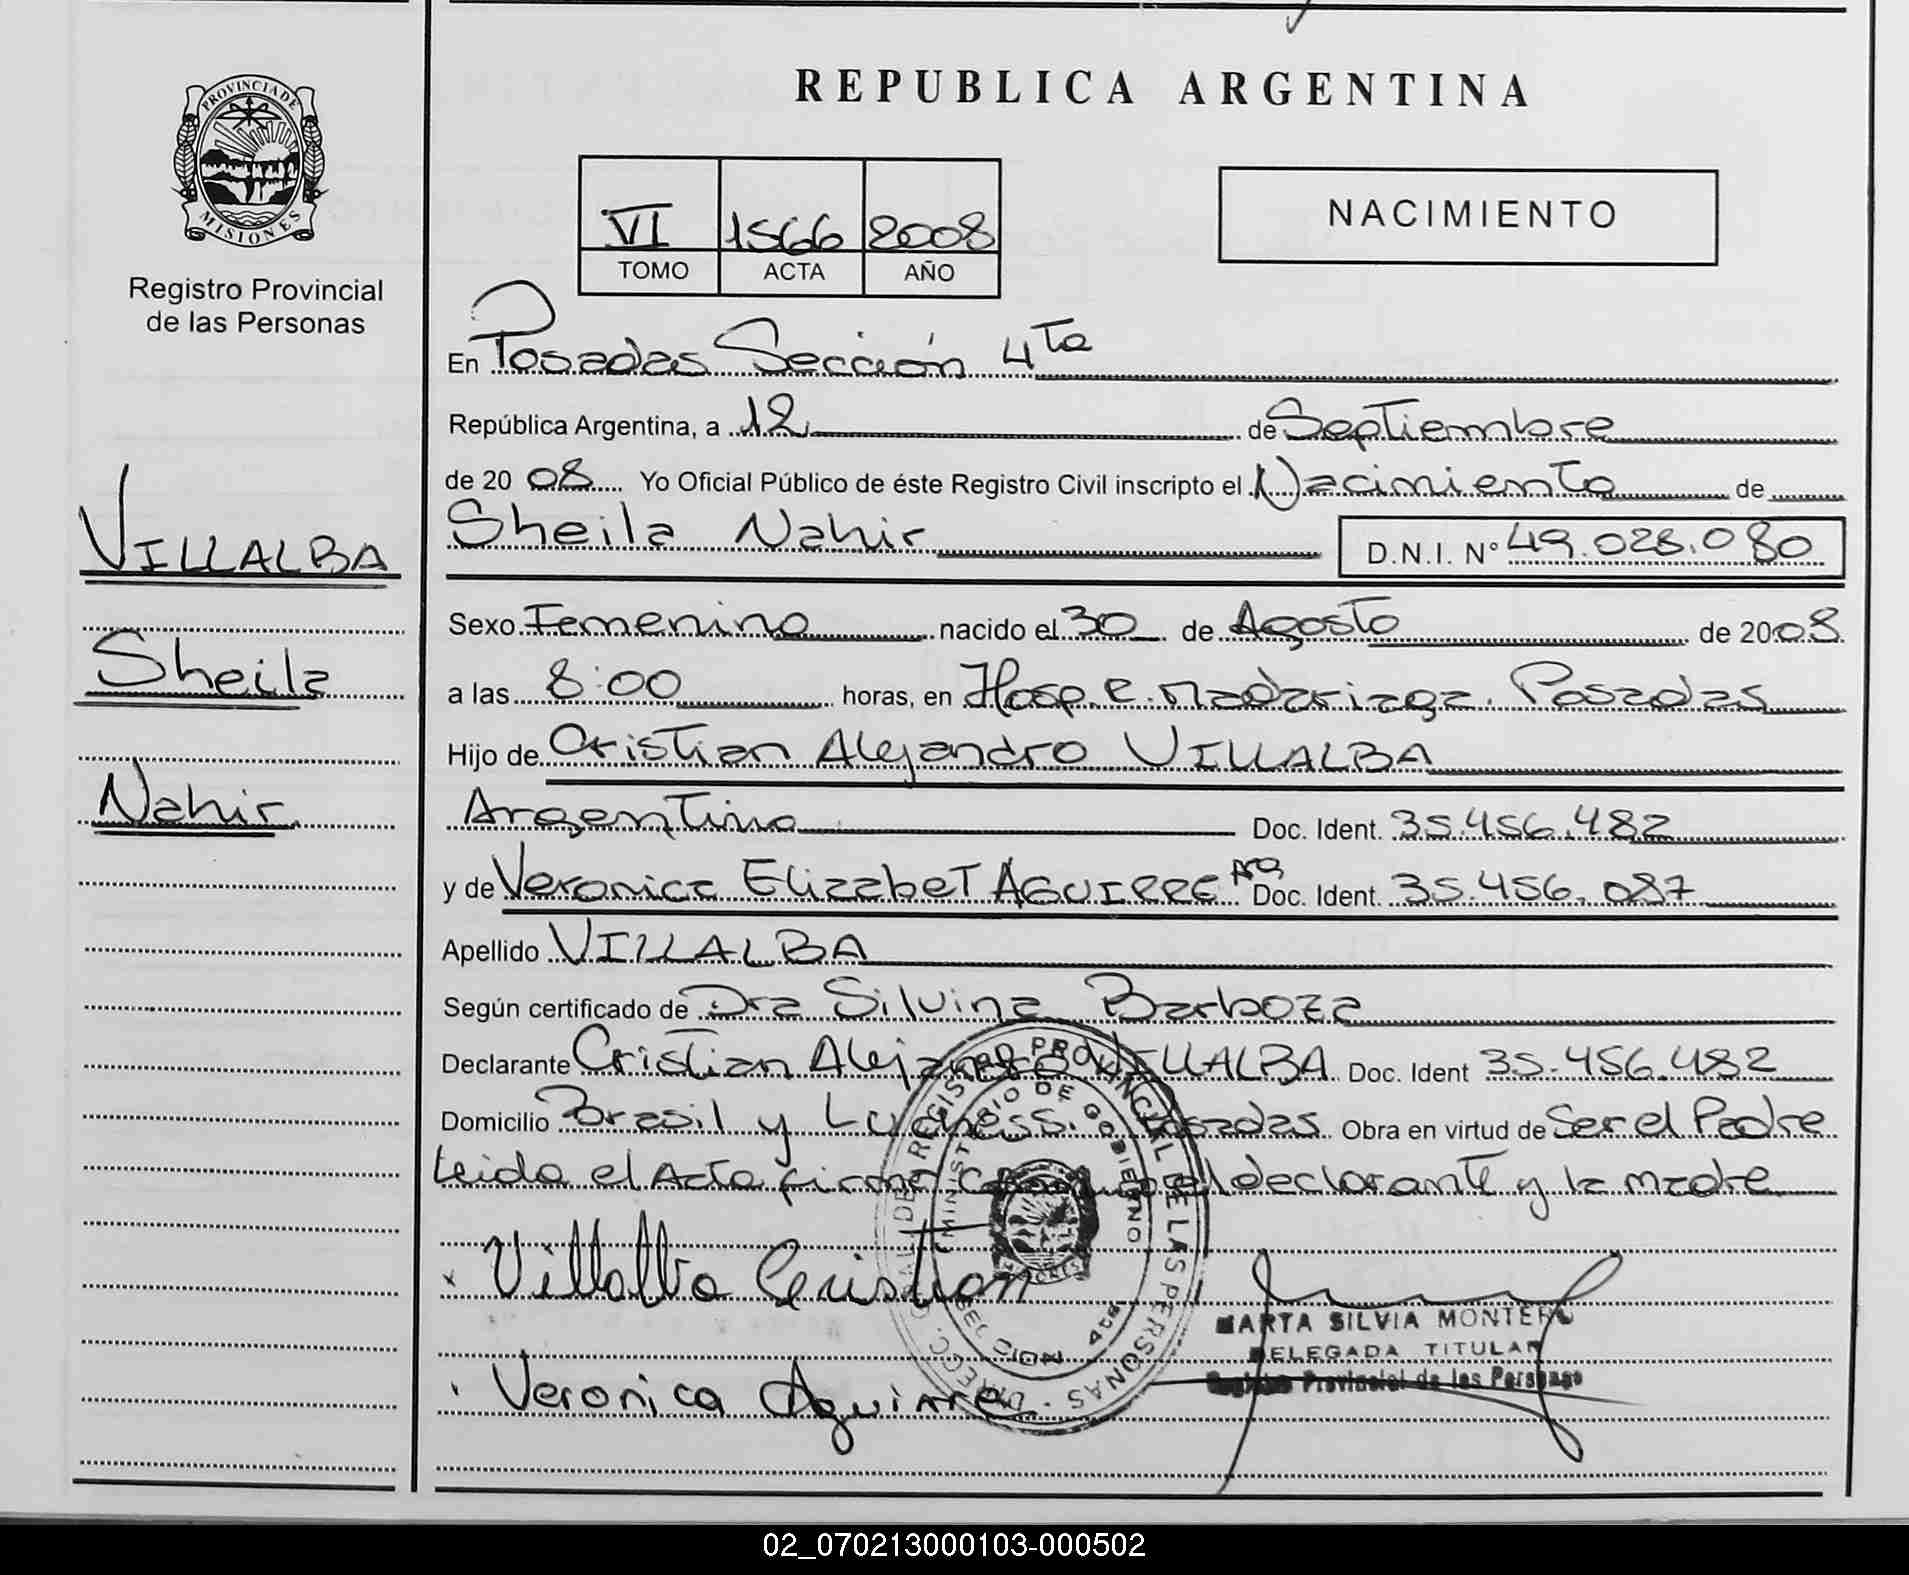 PROVINCIA DE
MISIONES
Registro Provincial
de las Personas
VILLALBA
Sheila
Nahir
REPUBLICA ARGENTINA
VI 1566 2008
TOMO ACTA AÑO
NACIMIENTO
En Posadas Sección 4ta
República Argentina, a 12 de Septiembre
de 20 08 Yo Oficial Público de éste Registro Civil inscripto el Nacimiento de
Sheila Nahir D.N.I. N° 49.028.080
Sexo Femenino nacido el 30 de Agosto de 2008
a las 8:00 horas, en Hosp. R. Madariaga. Posadas
Hijo de Cristian Alejandro VILLALBA
Argentino Doc. Ident. 35.456.482
y de Veronica Elizabet AGUIRRE Arg Doc. Ident. 35.456.087
Apellido VILLALBA
Según certificado de Dra Silvina Barboza
Declarante Cristian Alejandro VILLALBA Doc. Ident 35.456.482
Domicilio Brasil y Posadas Obra en virtud de Ser el Padre
Leida el Acta firma el declarante y la madre
Villalba Cristian
Veronica Aguirre
DIRECC. GRAL. DEL REGISTRO PROVINCIAL DE LAS PERSONAS
MINISTERIO DE GOBIERNO
4ta
MARTA SILVIA MONTERO
DELEGADA TITULAR
Registro Provincial de las Personas
02_070213000103-000502